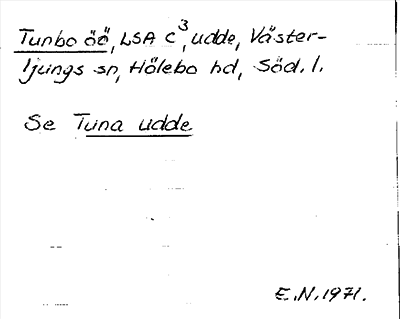 Tunbo öö, LSA C³, udde, Väster-
ljungs sn, Hölebo hd, Söd. l.
Se Tuna udde
E.N. 1971.